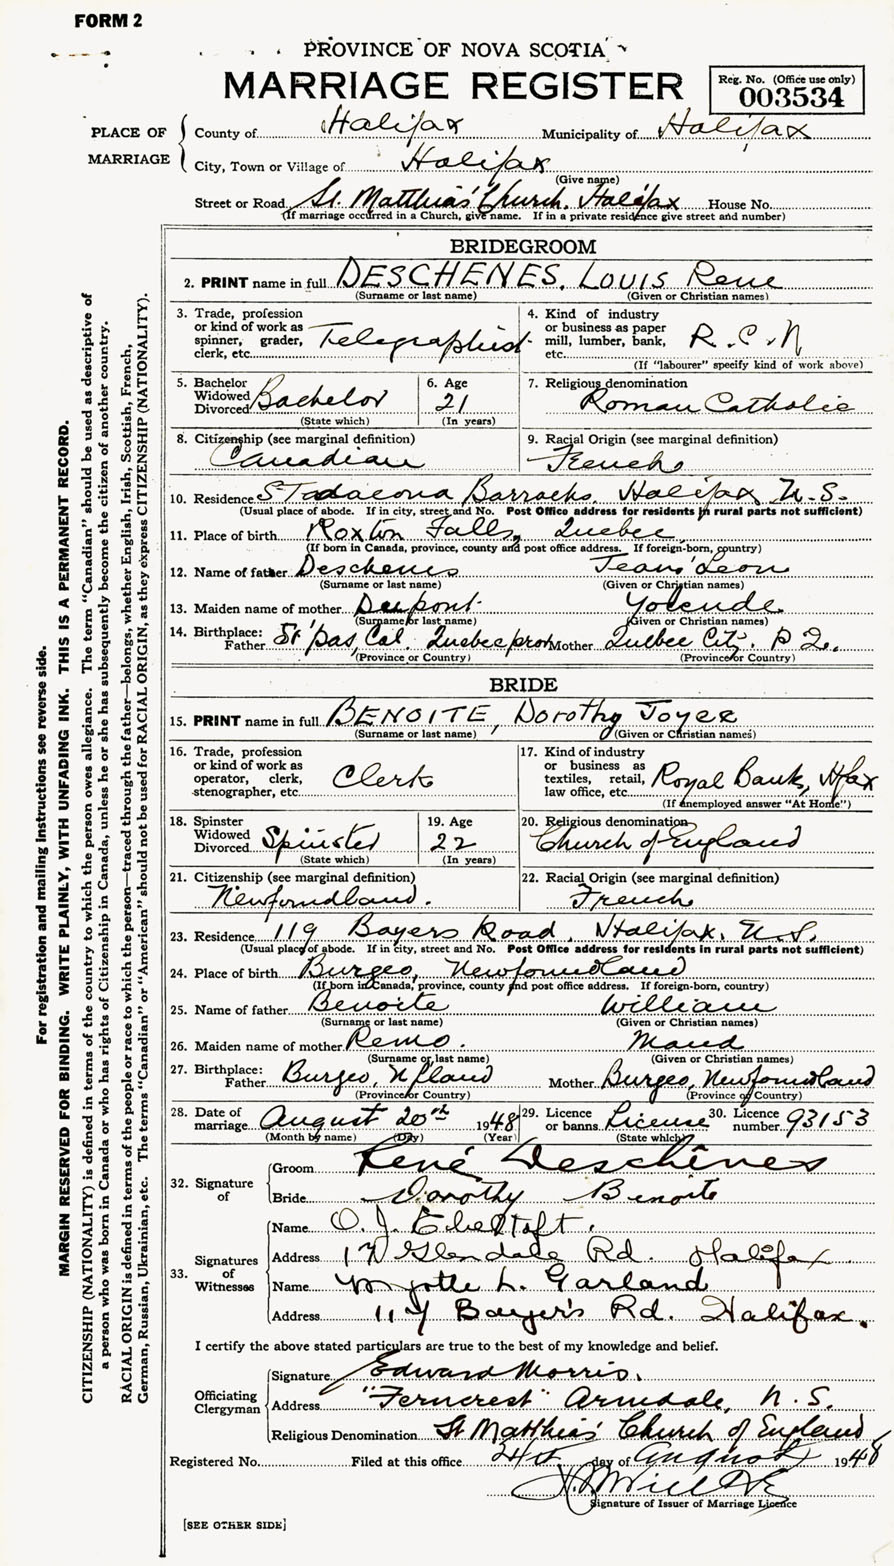 FORM 2
PROVINCE OF NOVA SCOTIA
MARRIAGE REGISTER
Reg. No. (Office use only)
003534
PLACE OF MARRIAGE
County of Halifax Municipality of Halifax
City, Town or Village of Halifax
(Give name)
Street or Road St. Matthias' Church, Halifax House No.
(If marriage occurred in a Church, give name. If in a private residence give street and number)
BRIDEGROOM
2. PRINT name in full DESCHENES, LOUIS Rene
(Surname or last name) (Given or Christian names)
3. Trade, profession or kind of work as spinner, grader, clerk, etc. Telegraphist
4. Kind of industry or business as paper mill, lumber, bank, etc. R.C.N
(If "labourer" specify kind of work above)
5. Bachelor Widowed Divorced Bachelor
(State which)
6. Age 21
(In years)
7. Religious denomination
Roman Catholic
8. Citizenship (see marginal definition)
Canadian
9. Racial Origin (see marginal definition)
French
10. Residence Stadacona Barracks, Halifax N.S.
(Usual place of abode. If in city, street and No. Post Office address for residents in rural parts not sufficient)
11. Place of birth Roxton Falls, Quebec
(If born in Canada, province, county and post office address. If foreign-born, country)
12. Name of father Deschenes Jean Leon
(Surname or last name) (Given or Christian names)
13. Maiden name of mother Dupont
(Surname or last name) (Given or Christian names)
14. Birthplace: Father Quebec prov Mother Quebec City, P.Q.
(Province or Country) (Province or Country)
BRIDE
15. PRINT name in full BENOITE, Dorothy Joyce
(Surname or last name) (Given or Christian names)
16. Trade, profession or kind of work as operator, clerk, stenographer, etc. Clerk
17. Kind of industry or business as textiles, retail, law office, etc. Royal Bank, Hfax
(If unemployed answer "At Home")
18. Spinster Widowed Divorced Spinster
(State which)
19. Age 22
(In years)
20. Religious denomination
Church of England
21. Citizenship (see marginal definition)
Newfoundland.
22. Racial Origin (see marginal definition)
French
23. Residence 119 Bayers Road, Halifax, N.S.
(Usual place of abode. If in city, street and No. Post Office address for residents in rural parts not sufficient)
24. Place of birth Burgeo, Newfoundland
(If born in Canada, province, county and post office address. If foreign-born, country)
25. Name of father Benoite William
(Surname or last name) (Given or Christian names)
26. Maiden name of mother Remo. Maud
(Surname or last name) (Given or Christian names)
27. Birthplace: Father Burgeo, Nfland Mother Burgeo, Newfoundland
(Province or Country) (Province or Country)
28. Date of marriage August 20th 1948
(Month by name) (Day) (Year)
29. Licence or banns License
(State which)
30. Licence number 93153
32. Signature of
Groom René Deschênes
Bride Dorothy Benoite
33. Signatures of Witnesses
Name O. J.
Address Glendale Rd. Halifax.
Name Myrtle L. Garland
Address Bayer's Rd. Halifax.
I certify the above stated particulars are true to the best of my knowledge and belief.
Officiating Clergyman
Signature Edward Morris.
Address "Ferncrest" Armdale, N.S.
Religious Denomination St Matthias' Church of England
Registered No. Filed at this office day of August 1948
Signature of Issuer of Marriage Licence
[SEE OTHER SIDE]
For registration and mailing instructions see reverse side.
MARGIN RESERVED FOR BINDING. WRITE PLAINLY, WITH UNFADING INK. THIS IS A PERMANENT RECORD.
CITIZENSHIP (NATIONALITY) is defined in terms of the country to which the person owes allegiance. The term "Canadian" should be used as descriptive of
a person who was born in Canada or who has rights of Citizenship in Canada, unless he or she has subsequently become the citizen of another country.
RACIAL ORIGIN is defined in terms of the people or race to which the person—traced through the father—belongs, whether English, Irish, Scottish, French,
German, Russian, Ukrainian, etc. The terms "Canadian" or "American" should not be used for RACIAL ORIGIN, as they express CITIZENSHIP (NATIONALITY).